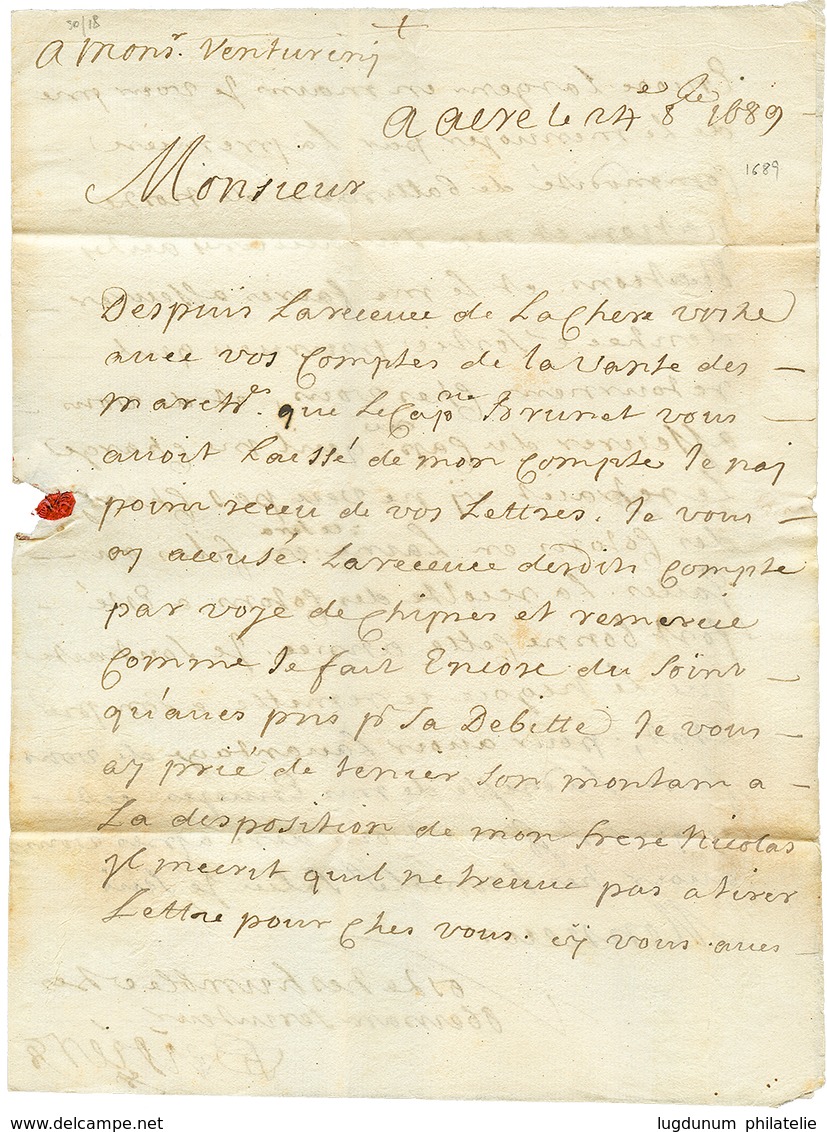 30/18
+
A Monsr. Venturinj
A acre le 24 8bre 1689
1689
Monsieur
Despuis Lareceue de La Chere vostre
auec vos Comptes de la Vante des
March. que Le Capne Brunet vous
auoit Laissé de mon Compte Je naj
poin receu de vos Lettres. Je vous
aj acusé. Lareceue desdits Compte
par voye de Chipres et remercie
Comme Je fait Encore du Soint
qu'aues pris pr Sa Debitte Je vous
ay prié de tenier Son montam a
La desposition de mon frere Nicolas
jl mecrit quil ne treuue pas a tirer
Lettre pour Ches vous. sy vous aues
www.delcampe.net
lugdunum philatelie